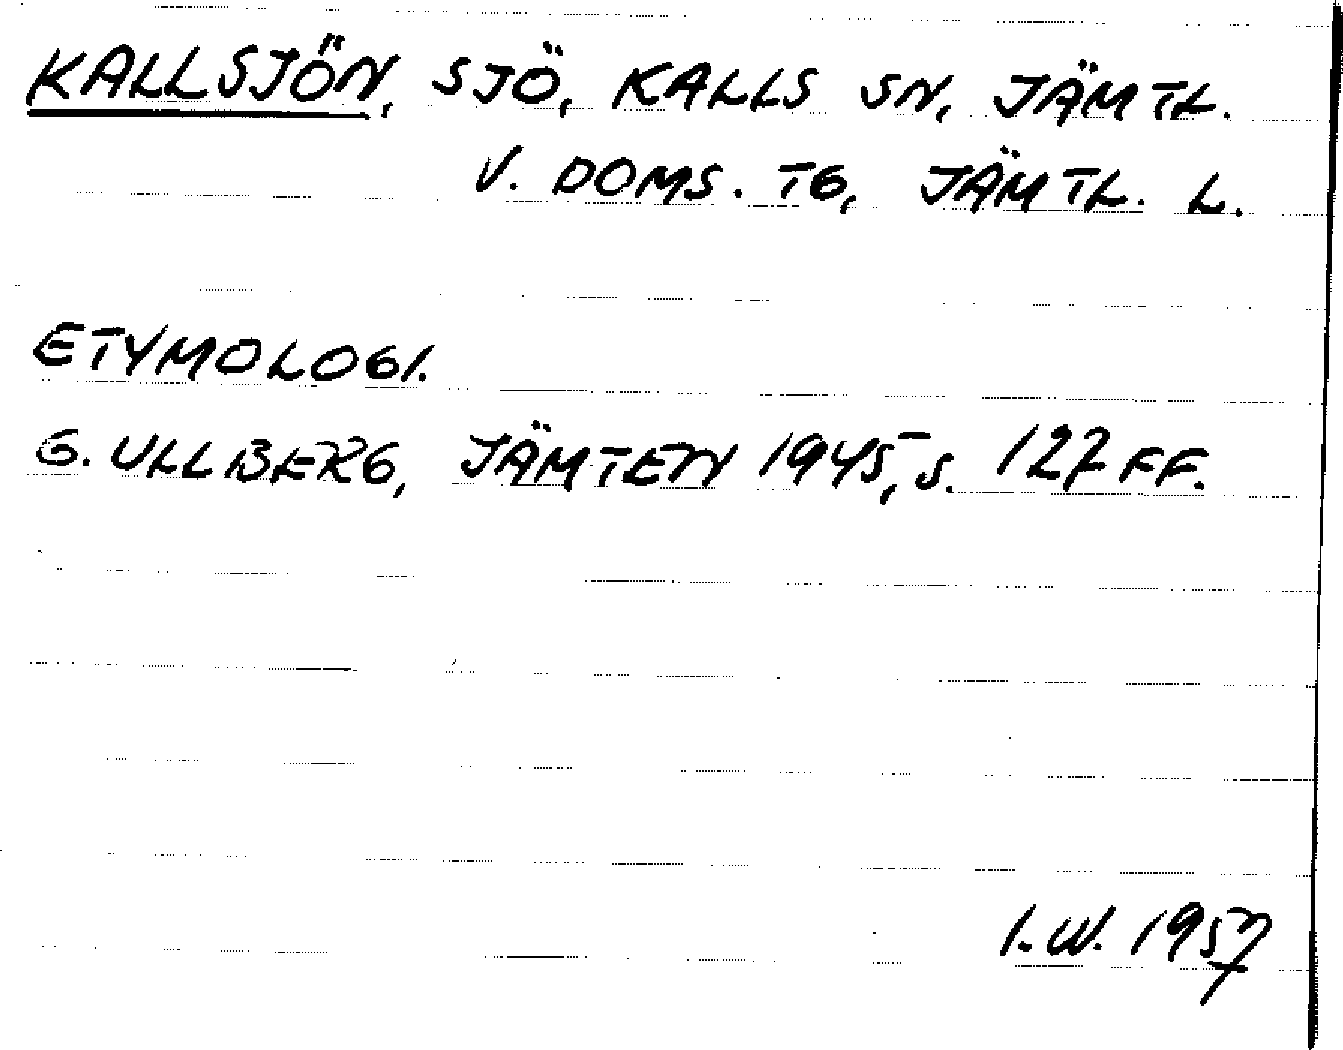 KALLSJÖN, SJÖ, KALLS SN, JÄMTL.
V. DOMS. TG, JÄMTL. L.
ETYMOLOGI.
G. ULLBERG, JÄMTEN 1945, S. 127 FF.
I.W. 1957